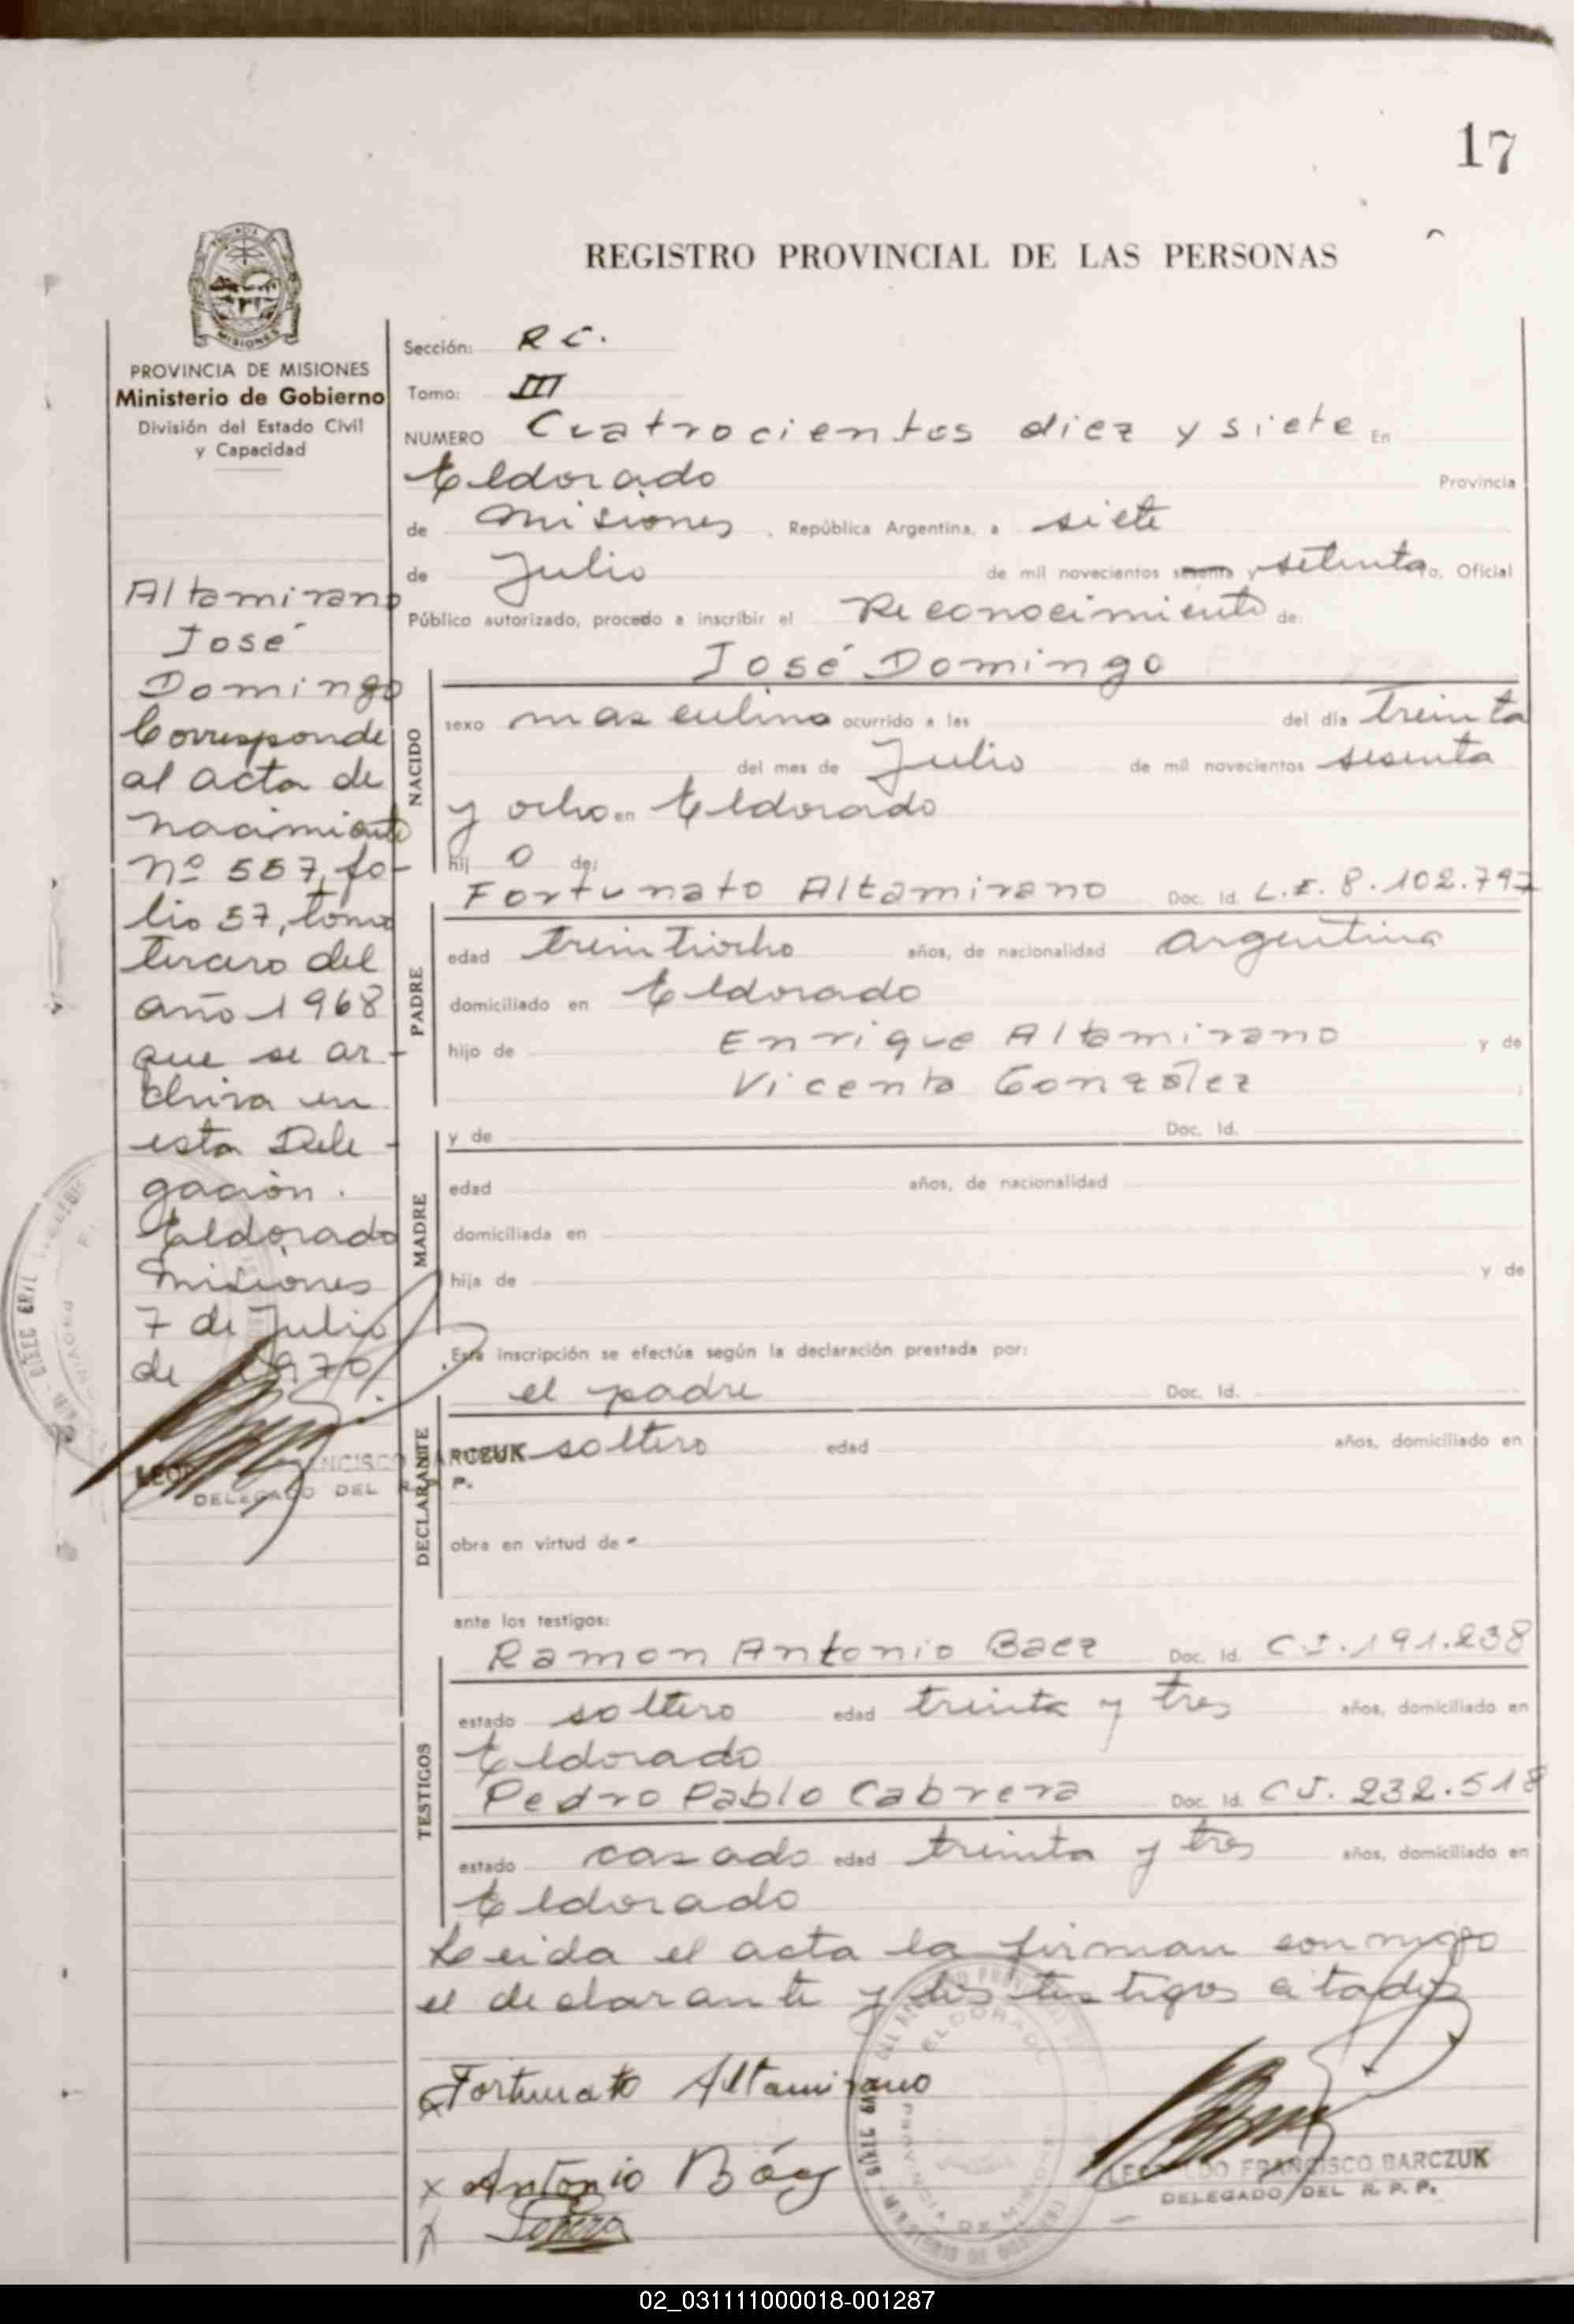 17
REGISTRO PROVINCIAL DE LAS PERSONAS
MISIONES
PROVINCIA DE MISIONES
Ministerio de Gobierno
División del Estado Civil
y Capacidad
Altamirano
José
Domingo
Corresponde
al acta de
nacimiento
nº 557, fo-
lio 57, tomo
tercero del
año 1968
que se ar-
chiva en
esta Dele-
gación.
Eldorado
Misiones
7 de Julio
de 1970
DELEGADO DEL R. P. P.
Sección: R C.
Tomo: III
NUMERO Cuatrocientos diez y siete En
Eldorado Provincia
de Misiones, República Argentina, a siete
de Julio de mil novecientos sesenta y setenta yo, Oficial
Público autorizado, procedo a inscribir el Reconocimiento de:
José Domingo
NACIDO
sexo masculino ocurrido a las del día treinta
del mes de Julio de mil novecientos sesenta
y ocho en Eldorado
hij o de:
Fortunato Altamirano Doc. Id. L.E. 8.102.797
PADRE
edad treintiocho años, de nacionalidad argentina
domiciliado en Eldorado
hijo de Enrique Altamirano y de
Vicenta González
MADRE
y de Doc. Id.
edad años, de nacionalidad
domiciliada en
hija de y de
Esta inscripción se efectúa según la declaración prestada por:
el padre Doc. Id.
DECLARANTE
soltero edad años, domiciliado en
obra en virtud de -
ante los testigos:
Ramon Antonio Baez Doc. Id. C.I. 191.238
TESTIGOS
estado soltero edad treinta y tres años, domiciliado en
Eldorado
Pedro Pablo Cabrera Doc. Id. C.I. 232.518
estado casado edad treinta y tres años, domiciliado en
Eldorado
Leida el acta la firman conmigo
el declarante y los testigos citados
x Fortunato Altamirano
x Antonio Báez
x
ELDORADO
PROVINCIA DE MISIONES
LEOPOLDO FRANCISCO BARCZUK
DELEGADO DEL R. P. P.
02_031111000018-001287